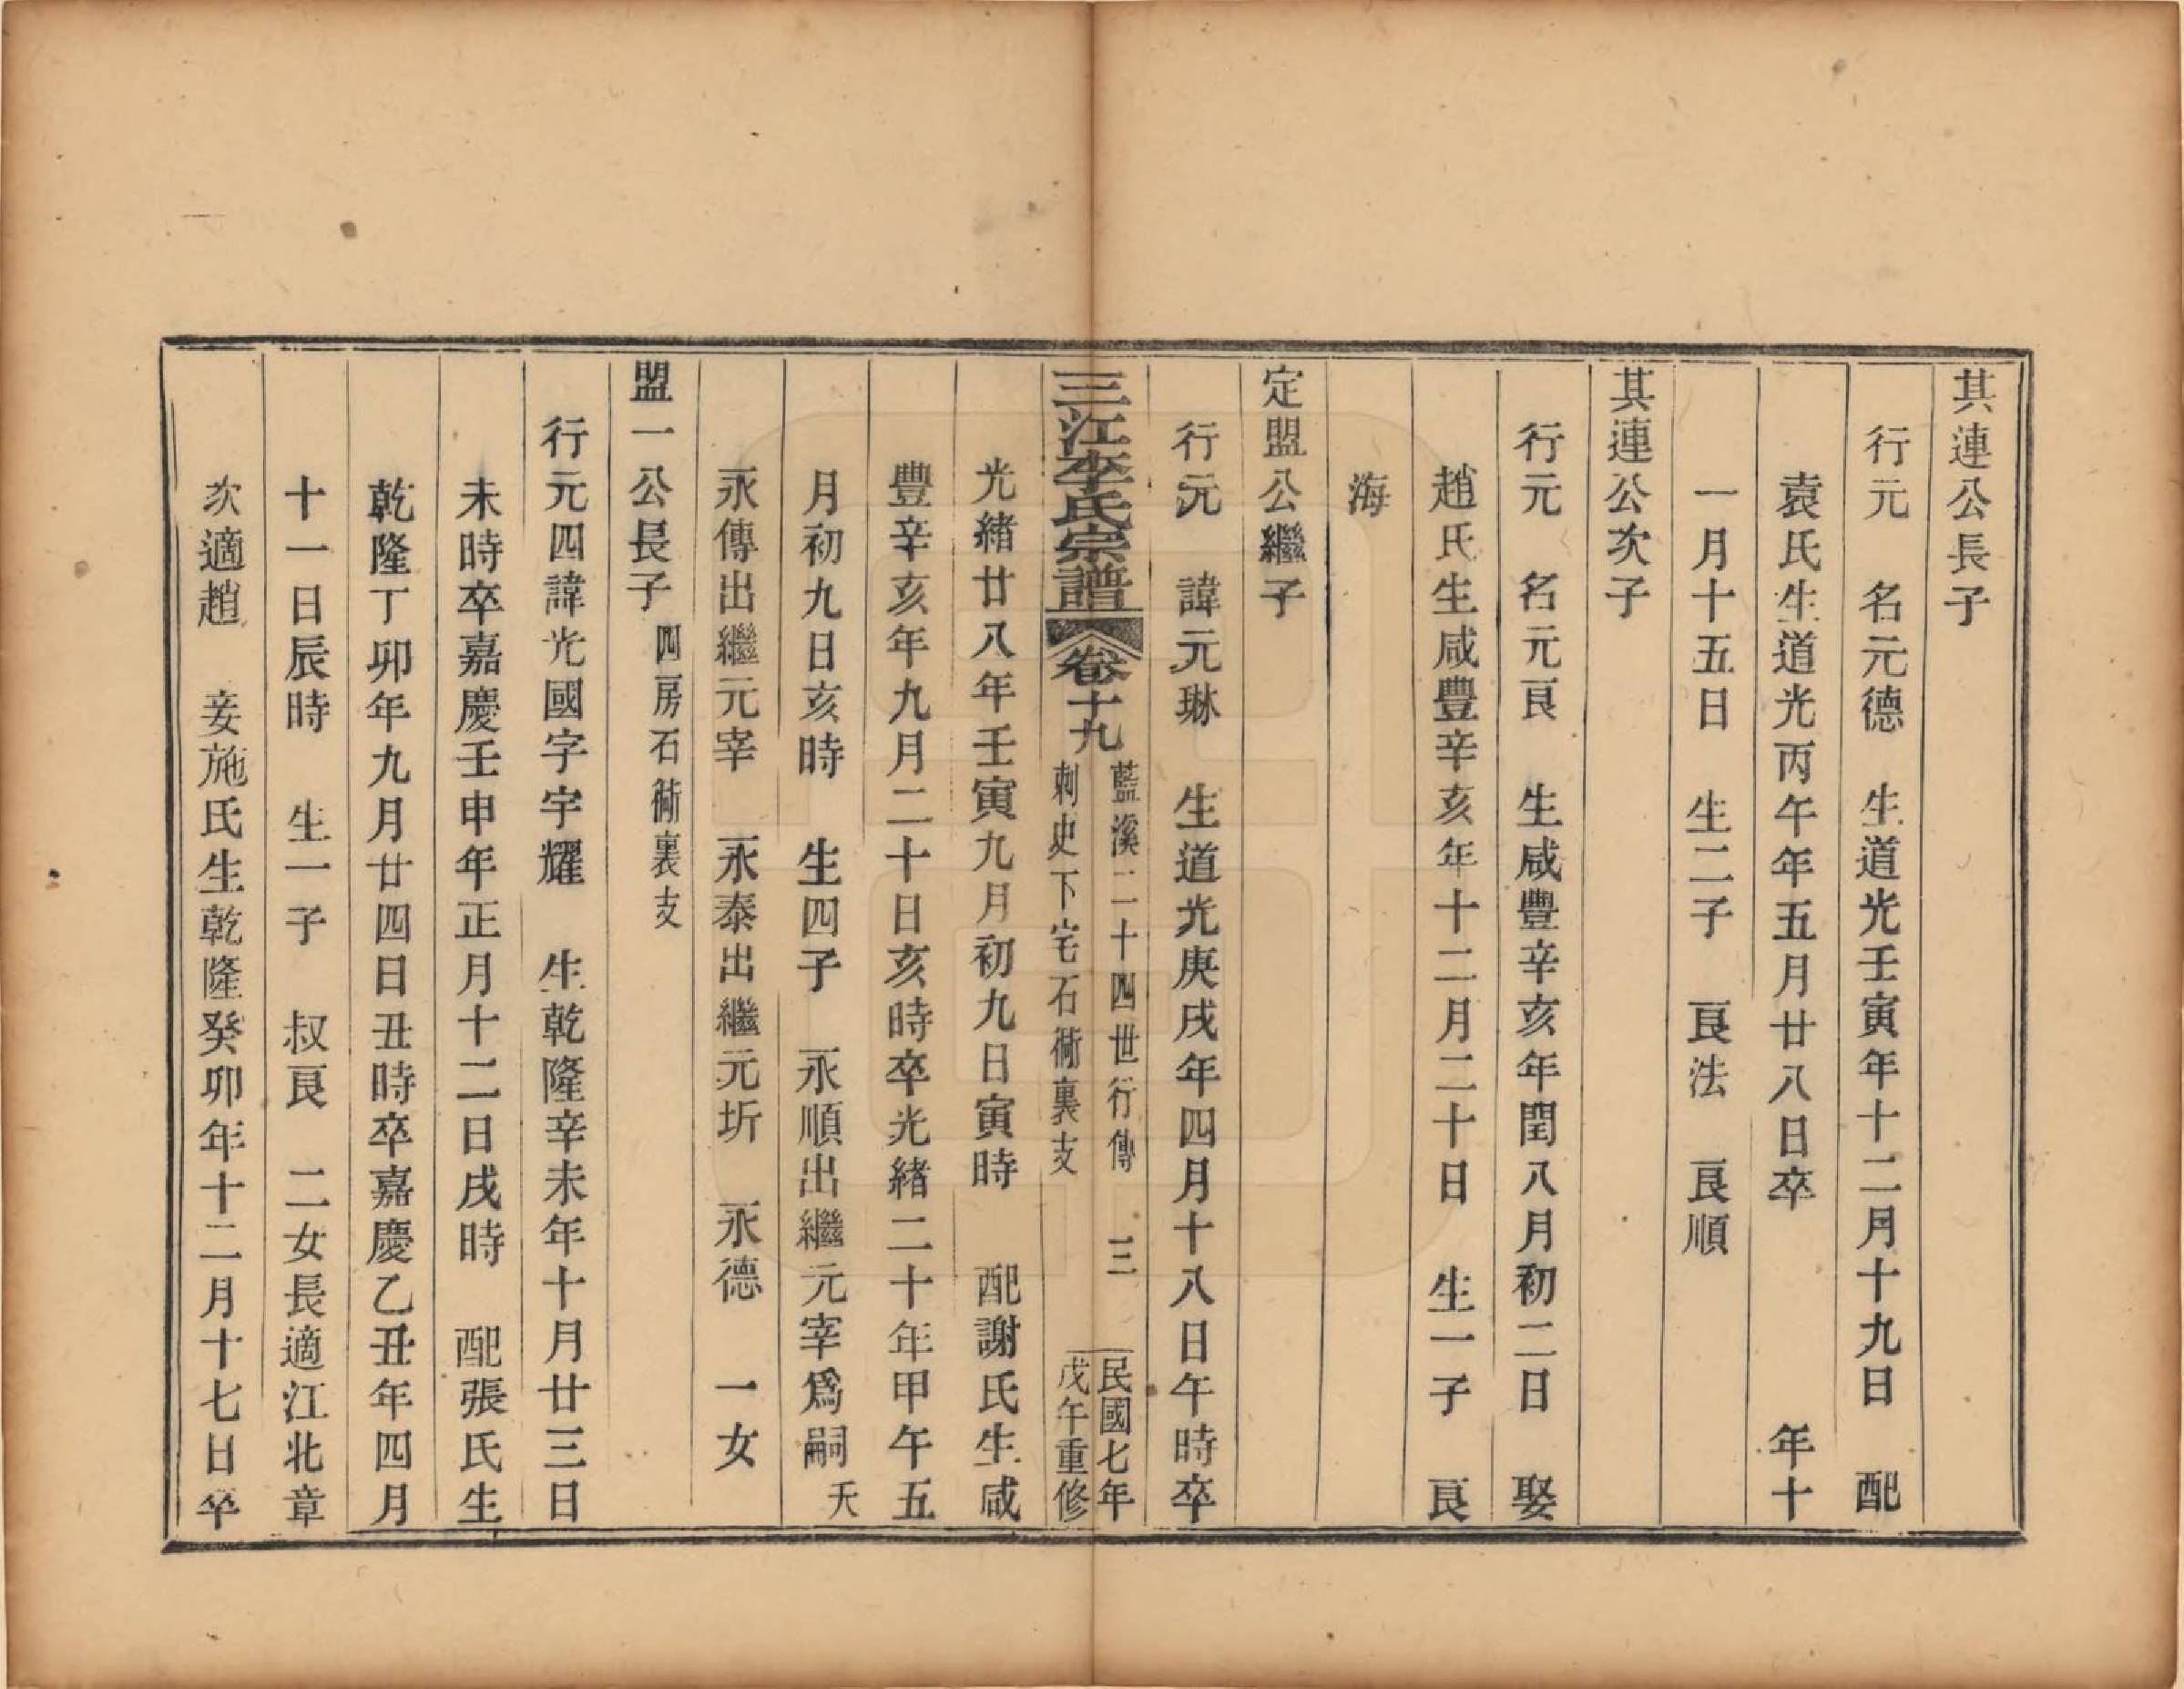 其連公長子
行元　名元德　生道光壬寅年十二月十九日　配
袁氏生道光丙午年五月廿八日卒　年十
一月十五日　生二子　良法　良順
其連公次子
行元　名元良　生咸豐辛亥年閏八月初二日　娶
趙氏生咸豐辛亥年十二月二十日　生一子　良
海
定盟公繼子
行元　諱元琳　生道光庚戌年四月十八日午時卒
三江李氏宗譜　卷十九　藍溪二十四世行傳　三　民國七年
刺史下宅石衕裏支　戊午重修
光緒廿八年壬寅九月初九日寅時　配謝氏生咸
豐辛亥年九月二十日亥時卒光緒二十年甲午五
月初九日亥時　生四子　永順出繼元宰爲嗣　夭
永傳出繼元宰　永泰出繼元圻　永德　一女
盟一公長子　四房石衕裏支
行元四諱光國字宇耀　生乾隆辛未年十月廿三日
未時卒嘉慶壬申年正月十二日戌時　配張氏生
乾隆丁卯年九月廿四日丑時卒嘉慶乙丑年四月
十一日辰時　生一子　叔良　二女長適江北章
次適趙　妾施氏生乾隆癸卯年十二月十七日卒